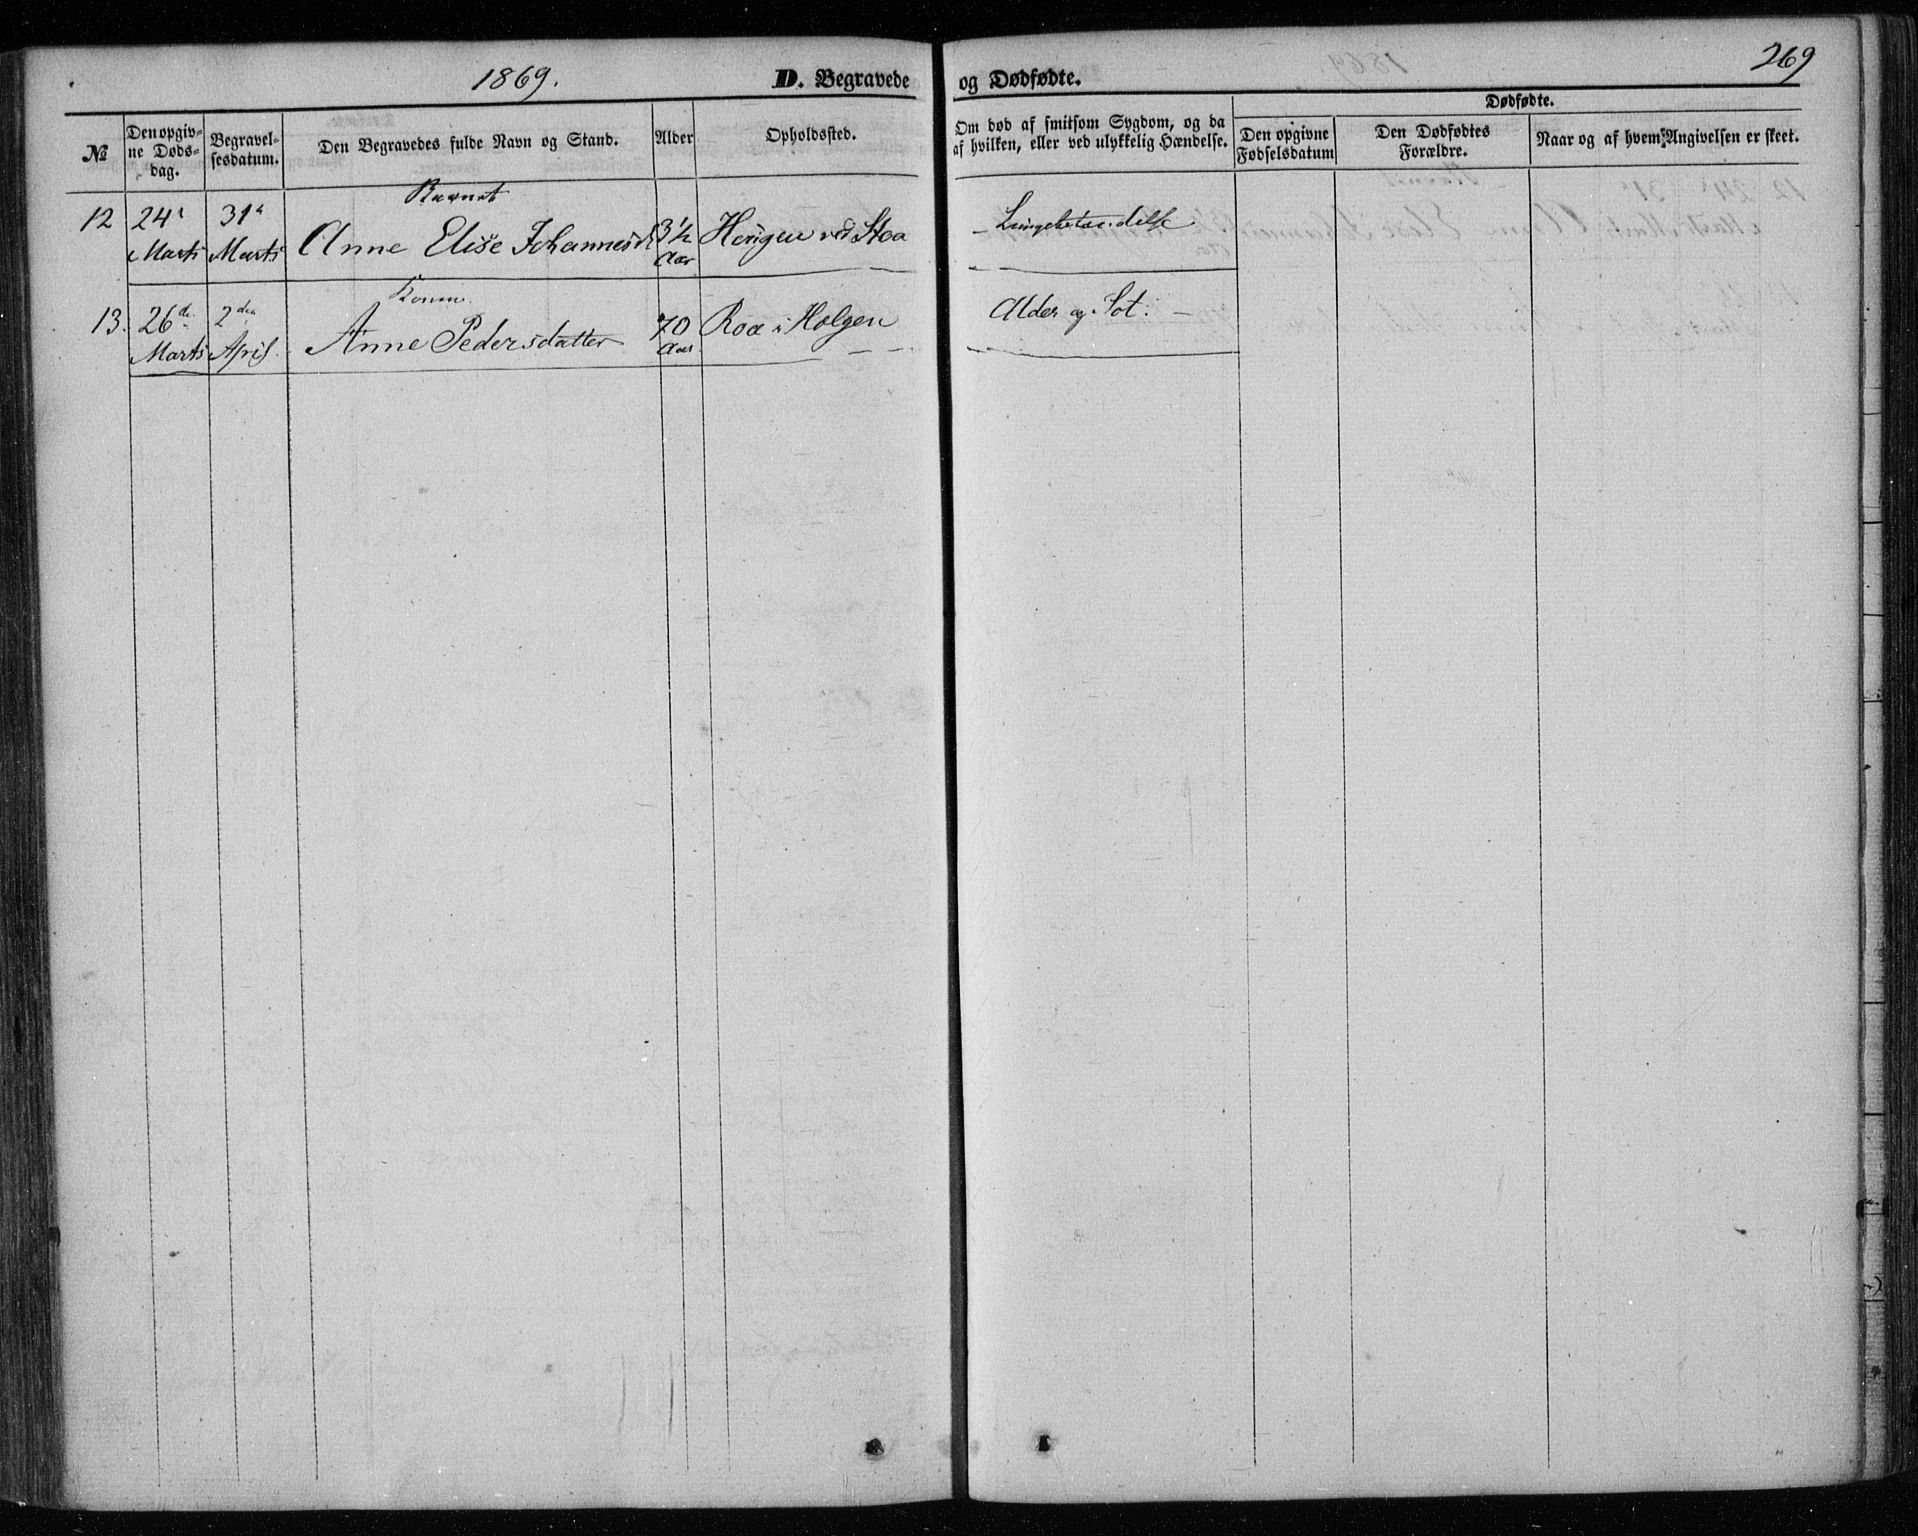 1869. D. Begravede og Dødfødte. 269
№ Den opgiv-
ne Døds-
dag. Begravel-
sesdatum. Den Begravedes fulde Navn og Stand. Alder Opholdssted. Om død af smitsom Sygdom, og da
af hvilken, eller ved ulykkelig Hændelse. Dødfødte.
Den opgivne
Fødselsdatum Den Dødfødtes
Forældre. Naar og af hvem Angivelsen er skeet.
Barnet
12 24 31 Anne Elise Johannesd 3½ ved Lungebetændelse
Marts Marts Aar
Konen
13. 26de 2den Anne Pedersdatter 70 Roa i Alder og Sot.
Marts April. Aar